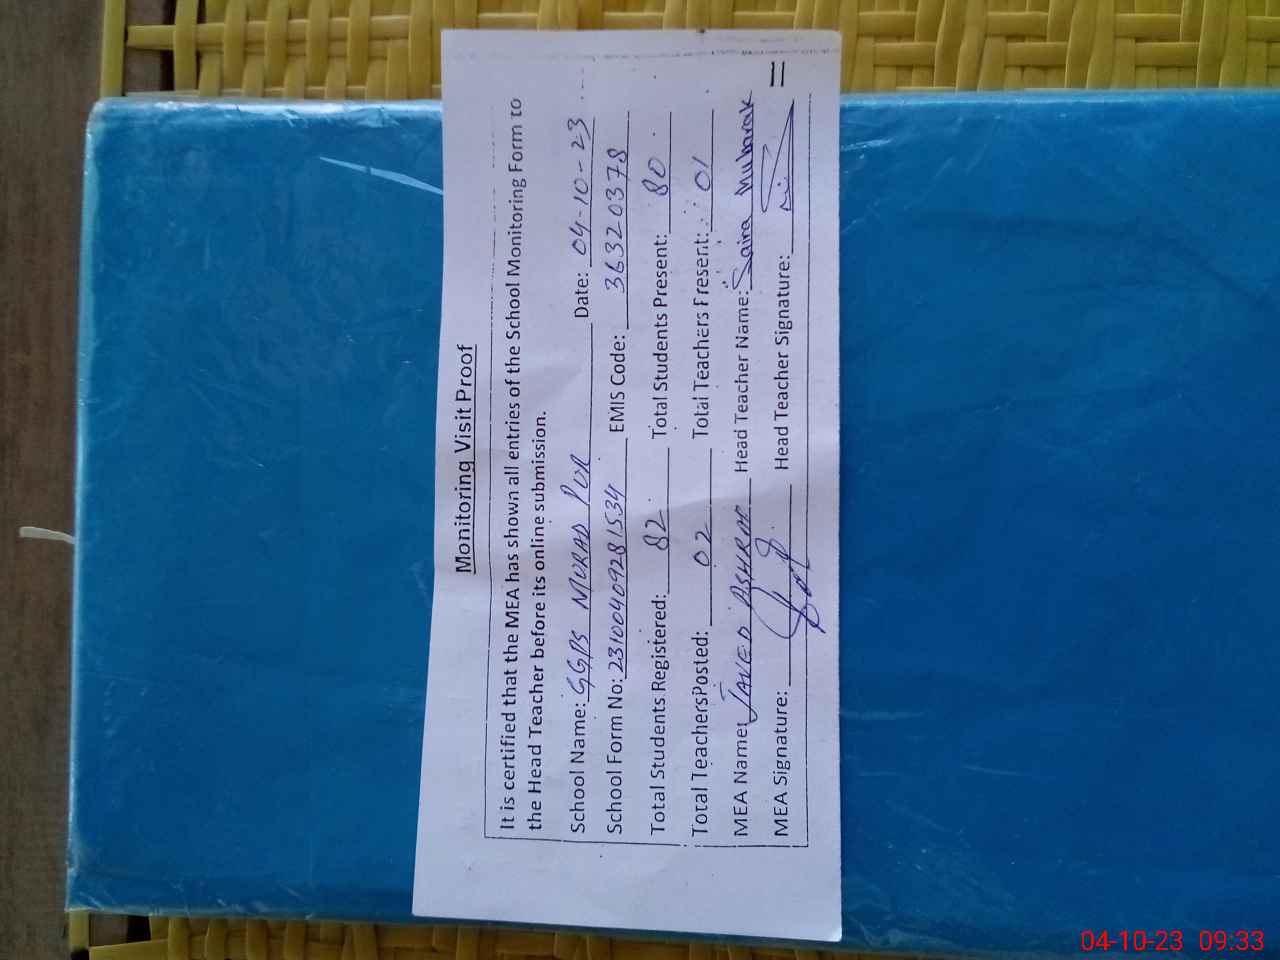 Monitoring Visit Proof
It is certified that the MEA has shown all entries of the School Monitoring Form to
the Head Teacher before its online submission.
School Name: GGPS MORAD PUR Date: 04-10-23
School Form No: 23100409281534 EMIS Code: 36320378
Total Students Registered: 82 Total Students Present: 80
Total TeachersPosted: 02 Total Teachers Present: 01
MEA Name: JAVED ASHRAF Head Teacher Name: Saira Mubarak
MEA Signature: Head Teacher Signature:
04-10-23 09:33